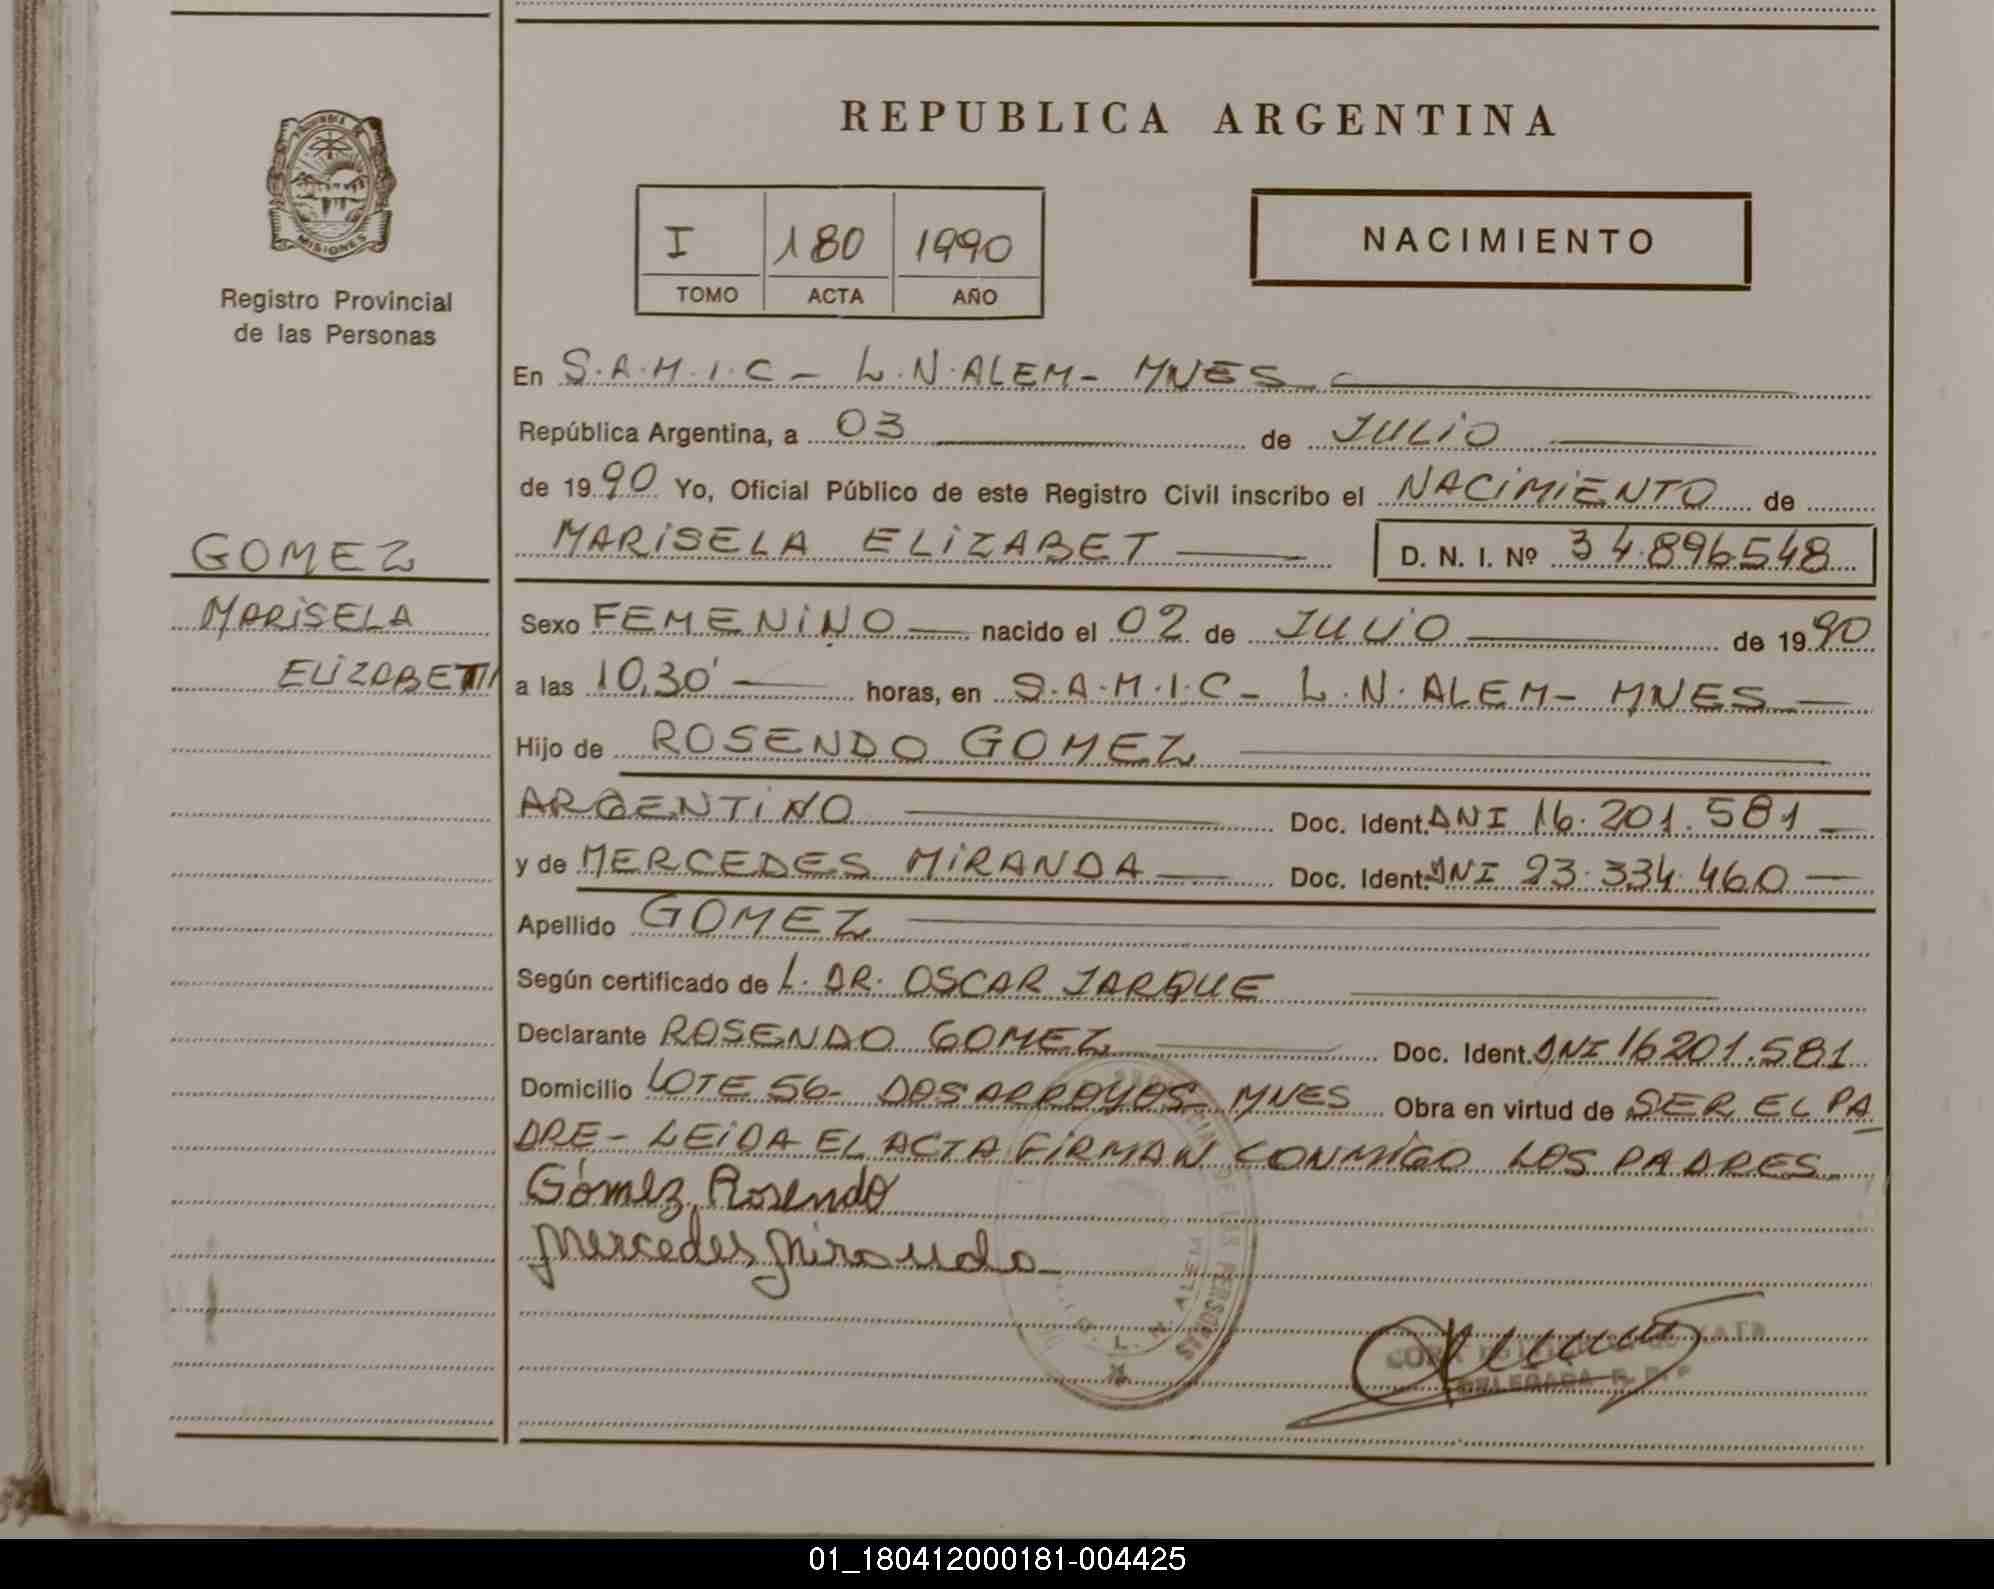 REPUBLICA ARGENTINA
PROVINCIA DE
MISIONES
Registro Provincial
de las Personas
I 180 1990
TOMO ACTA AÑO
NACIMIENTO
En S.A.M.I.C - L.N.ALEM - MNES
República Argentina, a 03 de JULIO
de 1990 Yo, Oficial Público de este Registro Civil inscribo el NACIMIENTO de
MARISELA ELIZABET D. N. I. Nº 34.896548
GOMEZ
MARISELA
ELIZABETH
Sexo FEMENINO nacido el 02 de JULIO de 1990
a las 10,30' horas, en S.A.M.I.C - L.N. ALEM - MNES
Hijo de ROSENDO GOMEZ
ARGENTINO Doc. Ident. DNI 16.201.581
y de MERCEDES MIRANDA Doc. Ident. DNI 23.334.460
Apellido GOMEZ
Según certificado de L. DR. OSCAR JARQUE
Declarante ROSENDO GOMEZ Doc. Ident. DNI 16201.581
Domicilio LOTE 56 - DOS ARROYOS - MNES Obra en virtud de SER EL PA
DRE - LEIDA EL ACTA FIRMAN CONMIGO LOS PADRES
Gómez, Rosendo
Mercedes Miranda
DE LAS PERSONAS
L. N. ALEM
DELEGADA R. P. P
01_180412000181-004425